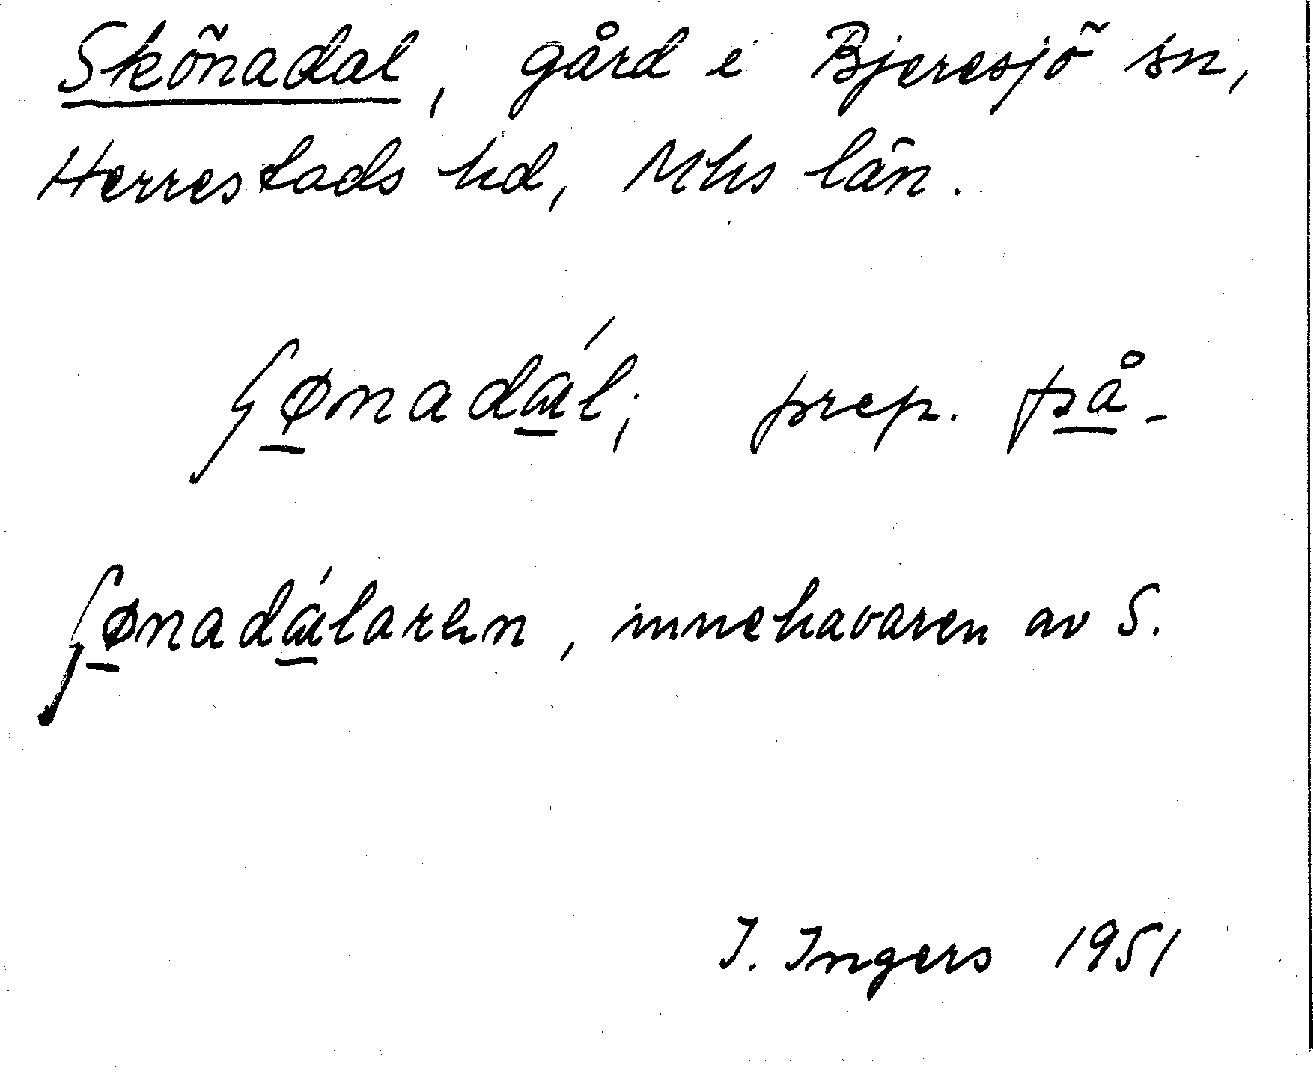 Skönadal, gård i Bjeresjö sn,
Herrestads hd, Mhs län.
ʃønadɑ́l; prep. på-
ʃønadɑ́larən, innehavaren av S.
I. Ingers 1951